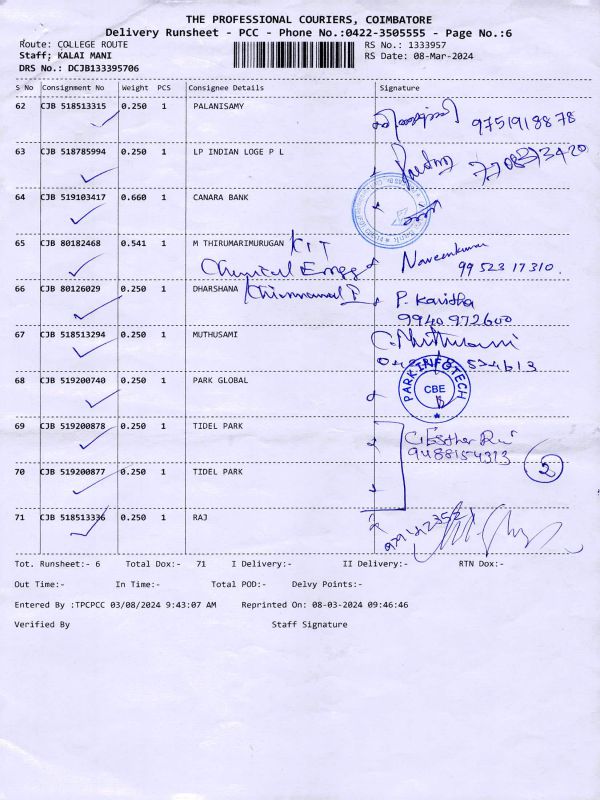 THE PROFESSIONAL COURIERS, COIMBATORE
Delivery Runsheet - PCC - Phone No.:0422-3505555 - Page No.:6
Route: COLLEGE ROUTE RS No.: 1333957
Staff; KALAI MANI RS Date: 08-Mar-2024
DRS No.: DCJB133395706
S No Consignment No Weight PCS Consignee Details Signature
62 CJB 518513315 0.250 1 PALANISAMY 9751918878
63 CJB 518785994 0.250 1 LP INDIAN LOGE P L
64 CJB 519103417 0.660 1 CANARA BANK
65 CJB 80182468 0.541 1 M THIRUMARIMURUGAN KIT Naveenkumar
Chemical 99523 17310.
66 CJB 80126029 0.250 1 DHARSHANA P. Kavitha
9940 972600
67 CJB 518513294 0.250 1 MUTHUSAMI
68 CJB 519200740 0.250 1 PARK GLOBAL PARK INFOTECH CBE
69 CJB 519200878 0.250 1 TIDEL PARK C. Esther
9488154313
70 CJB 519200877 0.250 1 TIDEL PARK 2
71 CJB 518513336 0.250 1 RAJ
Tot. Runsheet:- 6 Total Dox:- 71 I Delivery:- II Delivery:- RTN Dox:-
Out Time:- In Time:- Total POD:- Delvy Points:-
Entered By :TPCPCC 03/08/2024 9:43:07 AM Reprinted On: 08-03-2024 09:46:46
Verified By Staff Signature